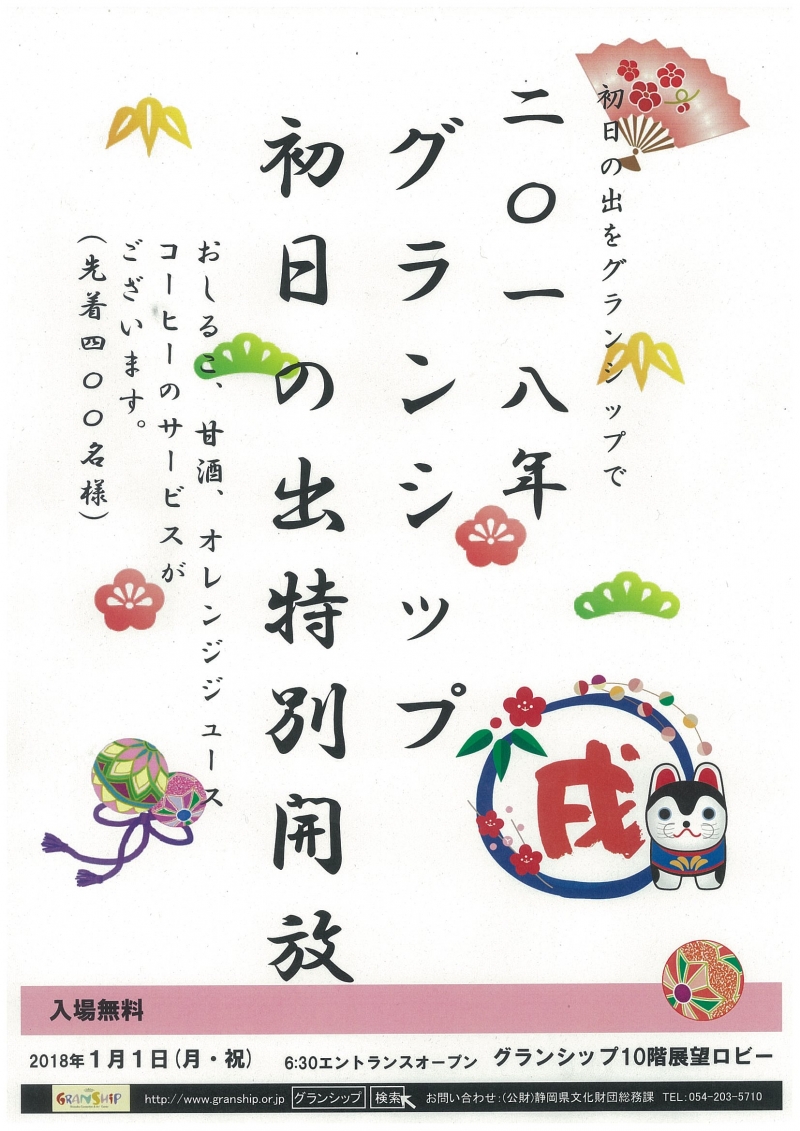 初日の出をグランシップで
二〇一八年
グランシップ
初日の出特別開放
おしるこ、甘酒、オレンジジュース
コーヒーのサービスが
ございます。
(先着四〇〇名様)
戌
入場無料
2018年1月1日(月・祝) 6:30エントランスオープン グランシップ10階展望ロビー
GRANSHIP http://www.granship.or.jp グランシップ 検索 お問い合わせ:(公財)静岡県文化財団総務課 TEL:054-203-5710